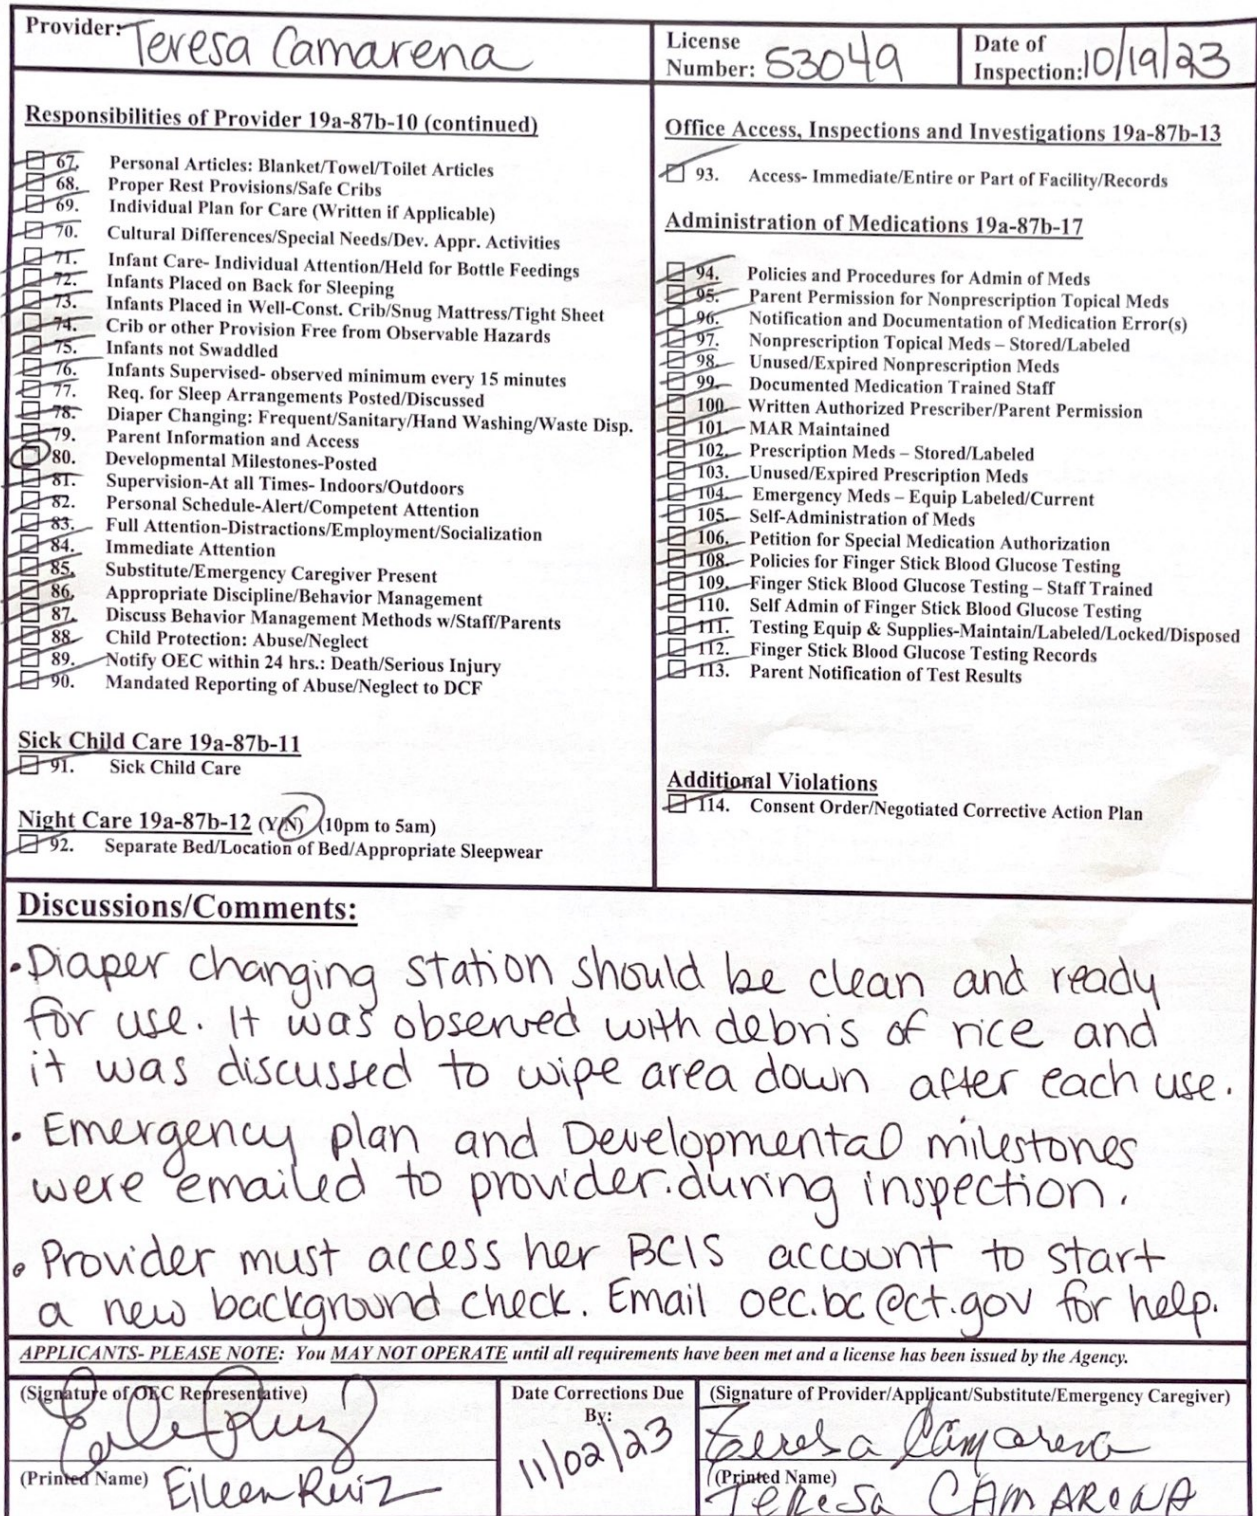 Provider: Teresa Camarena
License Number: 53049
Date of Inspection: 10/19/23
Responsibilities of Provider 19a-87b-10 (continued)
67. Personal Articles: Blanket/Towel/Toilet Articles
68. Proper Rest Provisions/Safe Cribs
69. Individual Plan for Care (Written if Applicable)
70. Cultural Differences/Special Needs/Dev. Appr. Activities
71. Infant Care- Individual Attention/Held for Bottle Feedings
72. Infants Placed on Back for Sleeping
73. Infants Placed in Well-Const. Crib/Snug Mattress/Tight Sheet
74. Crib or other Provision Free from Observable Hazards
75. Infants not Swaddled
76. Infants Supervised- observed minimum every 15 minutes
77. Req. for Sleep Arrangements Posted/Discussed
78. Diaper Changing: Frequent/Sanitary/Hand Washing/Waste Disp.
79. Parent Information and Access
80. Developmental Milestones-Posted
81. Supervision-At all Times- Indoors/Outdoors
82. Personal Schedule-Alert/Competent Attention
83. Full Attention-Distractions/Employment/Socialization
84. Immediate Attention
85. Substitute/Emergency Caregiver Present
86. Appropriate Discipline/Behavior Management
87. Discuss Behavior Management Methods w/Staff/Parents
88. Child Protection: Abuse/Neglect
89. Notify OEC within 24 hrs.: Death/Serious Injury
90. Mandated Reporting of Abuse/Neglect to DCF
Sick Child Care 19a-87b-11
91. Sick Child Care
Night Care 19a-87b-12 (Y/N) (10pm to 5am)
92. Separate Bed/Location of Bed/Appropriate Sleepwear
Office Access, Inspections and Investigations 19a-87b-13
93. Access- Immediate/Entire or Part of Facility/Records
Administration of Medications 19a-87b-17
94. Policies and Procedures for Admin of Meds
95. Parent Permission for Nonprescription Topical Meds
96. Notification and Documentation of Medication Error(s)
97. Nonprescription Topical Meds – Stored/Labeled
98. Unused/Expired Nonprescription Meds
99. Documented Medication Trained Staff
100. Written Authorized Prescriber/Parent Permission
101. MAR Maintained
102. Prescription Meds – Stored/Labeled
103. Unused/Expired Prescription Meds
104. Emergency Meds – Equip Labeled/Current
105. Self-Administration of Meds
106. Petition for Special Medication Authorization
108. Policies for Finger Stick Blood Glucose Testing
109. Finger Stick Blood Glucose Testing – Staff Trained
110. Self Admin of Finger Stick Blood Glucose Testing
111. Testing Equip & Supplies-Maintain/Labeled/Locked/Disposed
112. Finger Stick Blood Glucose Testing Records
113. Parent Notification of Test Results
Additional Violations
114. Consent Order/Negotiated Corrective Action Plan
Discussions/Comments:
• Diaper changing station should be clean and ready
for use. It was observed with debris of rice and
it was discussed to wipe area down after each use.
• Emergency plan and Developmental milestones
were emailed to provider. during inspection.
• Provider must access her BCIS account to start
a new background check. Email oec.bc@ct.gov for help.
APPLICANTS- PLEASE NOTE: You MAY NOT OPERATE until all requirements have been met and a license has been issued by the Agency.
(Signature of OEC Representative)
Eileen Ruiz
(Printed Name) Eileen Ruiz
Date Corrections Due
By:
11/02/23
(Signature of Provider/Applicant/Substitute/Emergency Caregiver)
Teresa Camarena
(Printed Name)
TEReSa CAMARENA